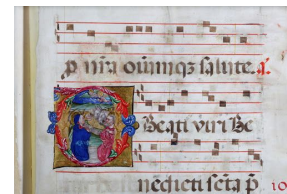 p nr̃a oūniqz salute. a.
Beati viri Be
nedicti scta p
10